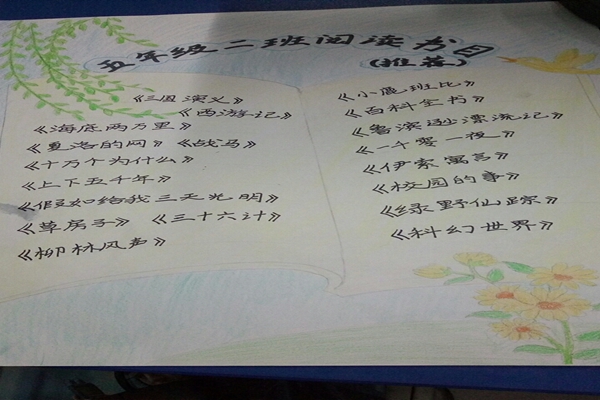 五年级二班阅读书目
(推荐)
《三国演义》
《西游记》
《海底两万里》
《夏洛的网》 《战马》
《十万个为什么》
《上下五千年》
《假如给我三天光明》
《草房子》 《三十六计》
《柳林风声》
《小鹿班比》
《百科全书》
《鲁滨逊漂流记》
《一千零一夜》
《伊索寓言》
《校园的事》
《绿野仙踪》
《科幻世界》